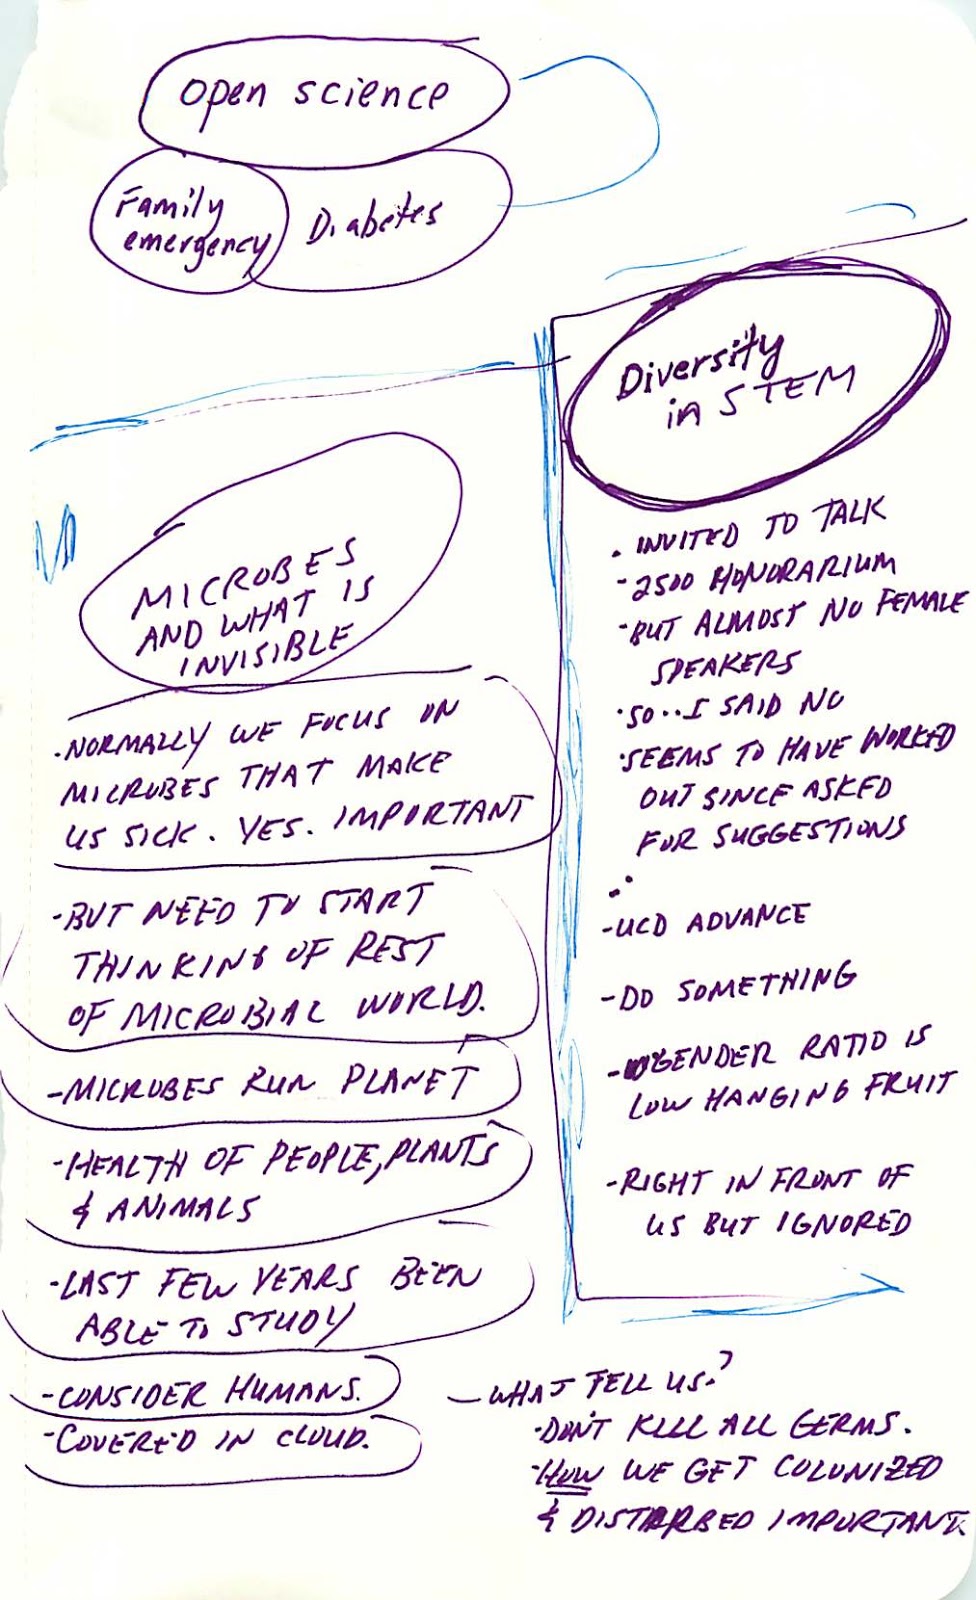 Open science
Family
emergency
Diabetes
Diversity
in STEM
• INVITED TO TALK
• 2500 HONORARIUM
• BUT ALMOST NO FEMALE
SPEAKERS
• SO.. I SAID NO
• SEEMS TO HAVE WORKED
OUT SINCE ASKED
FOR SUGGESTIONS
- UCD ADVANCE
- DO SOMETHING
- GENDER RATIO IS
LOW HANGING FRUIT
- RIGHT IN FRONT OF
US BUT IGNORED
MICROBES
AND WHAT IS
INVISIBLE
• NORMALLY WE FOCUS ON
MICROBES THAT MAKE
US SICK. YES. IMPORTANT
- BUT NEED TO START
THINKING OF REST
OF MICROBIAL WORLD.
- MICROBES RUN PLANET
- HEALTH OF PEOPLE, PLANTS
& ANIMALS
- LAST FEW YEARS BEEN
ABLE TO STUDY
- CONSIDER HUMANS.
- COVERED IN CLOUD.
- WHAT TELL US?
- DON'T KILL ALL GERMS.
- HOW WE GET COLONIZED
& DISTURBED IMPORTANT